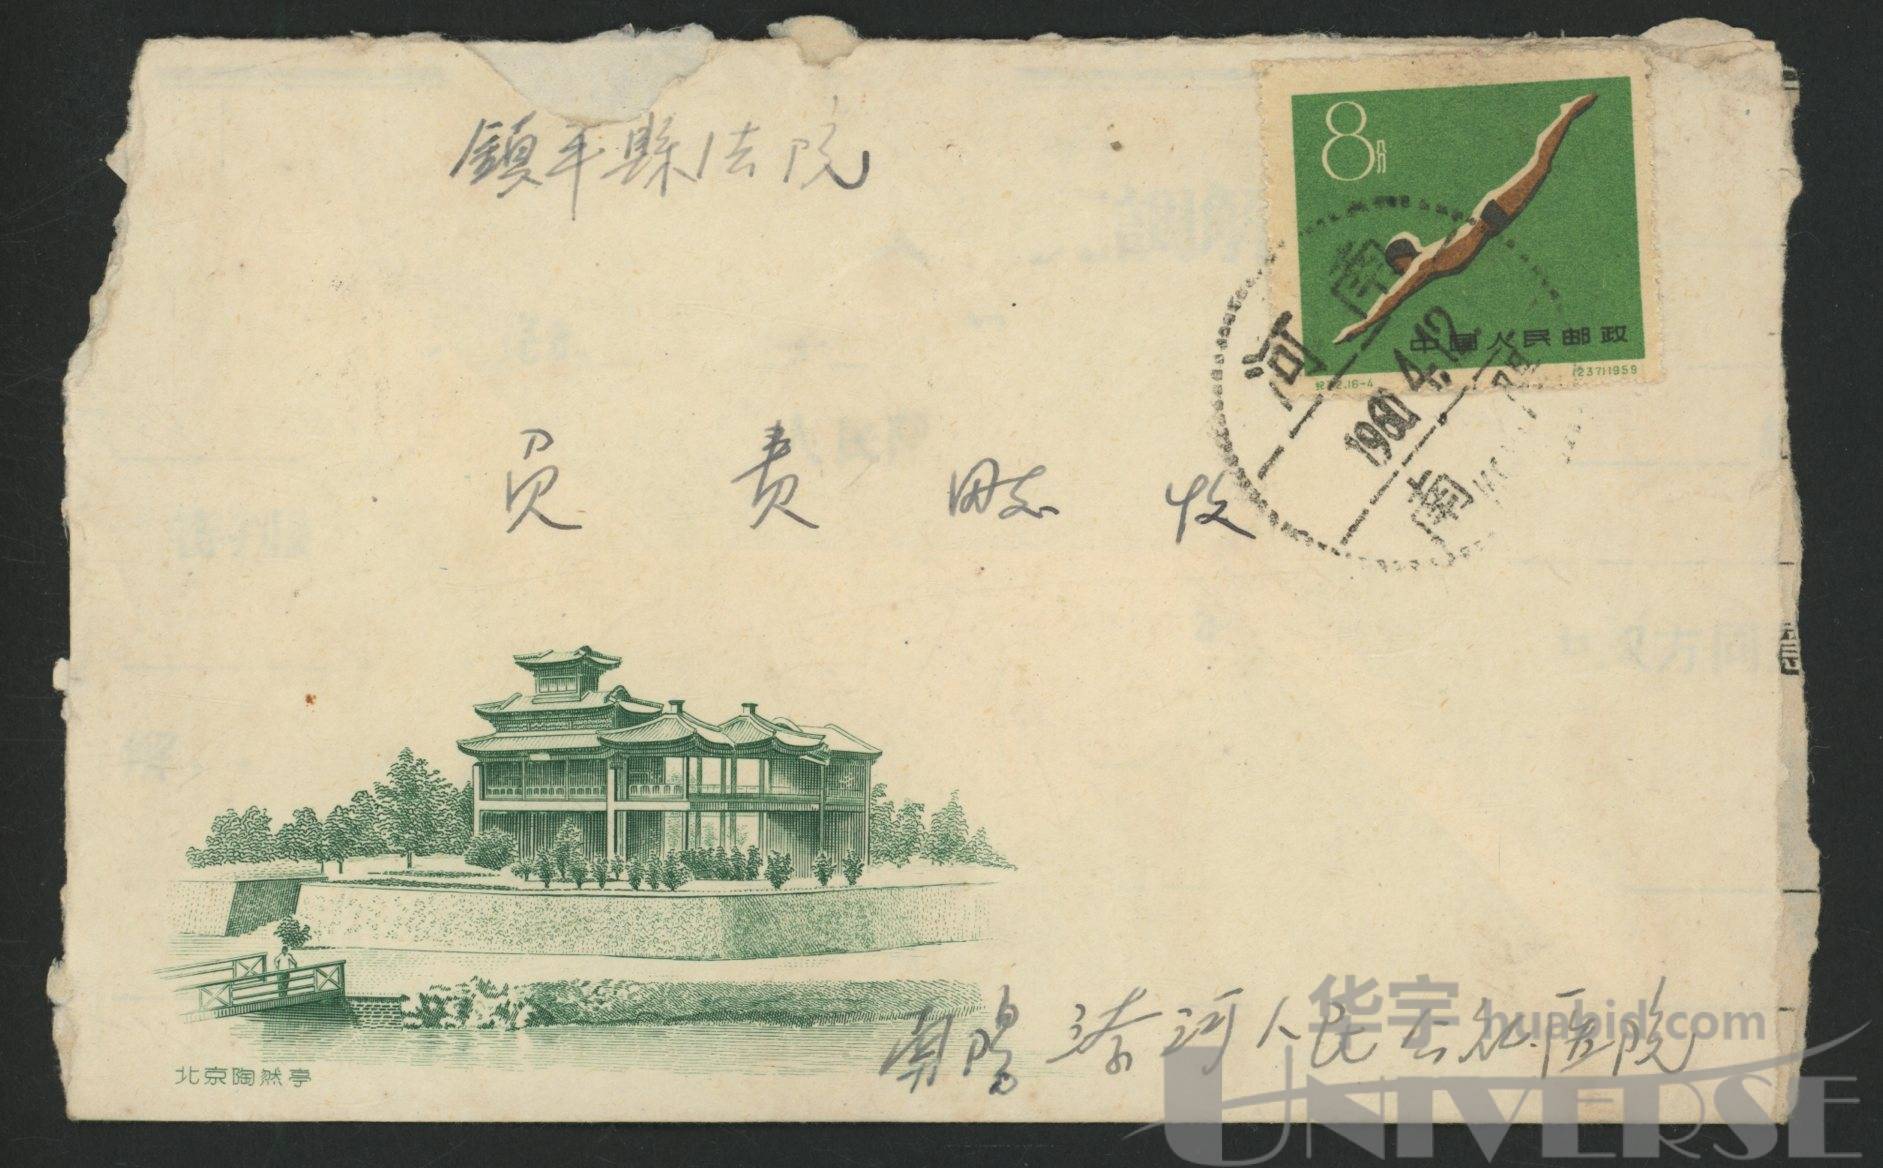 鎮平縣法院
8分
中国人民邮政
纪72.16-4
(237)1959
河南
1960.4.12
南
员 责 同志 收
北京陶然亭
南陽 漆河人民公社医院
华宇 huabid.com
UNIVERSE